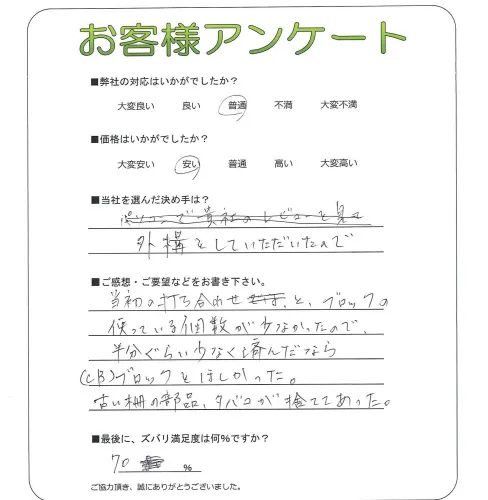 お客様アンケート
■弊社の対応はいかがでしたか？
大変良い 良い 普通 不満 大変不満
■価格はいかがでしたか？
大変安い 安い 普通 高い 大変高い
■当社を選んだ決め手は？
パソコンで貴社のレビューを見て
外構をしていただいたので
■ご感想・ご要望などをお書き下さい。
当初の打ち合わせ と、ブロックの
使っている個数が少なかったので、
半分ぐらい少なく済んだなら
(CB)ブロックをほしかった。
古い柵の部品、タバコが捨ててあった。
■最後に、ズバリ満足度は何％ですか？
70 ％
ご協力頂き、誠にありがとうございました。